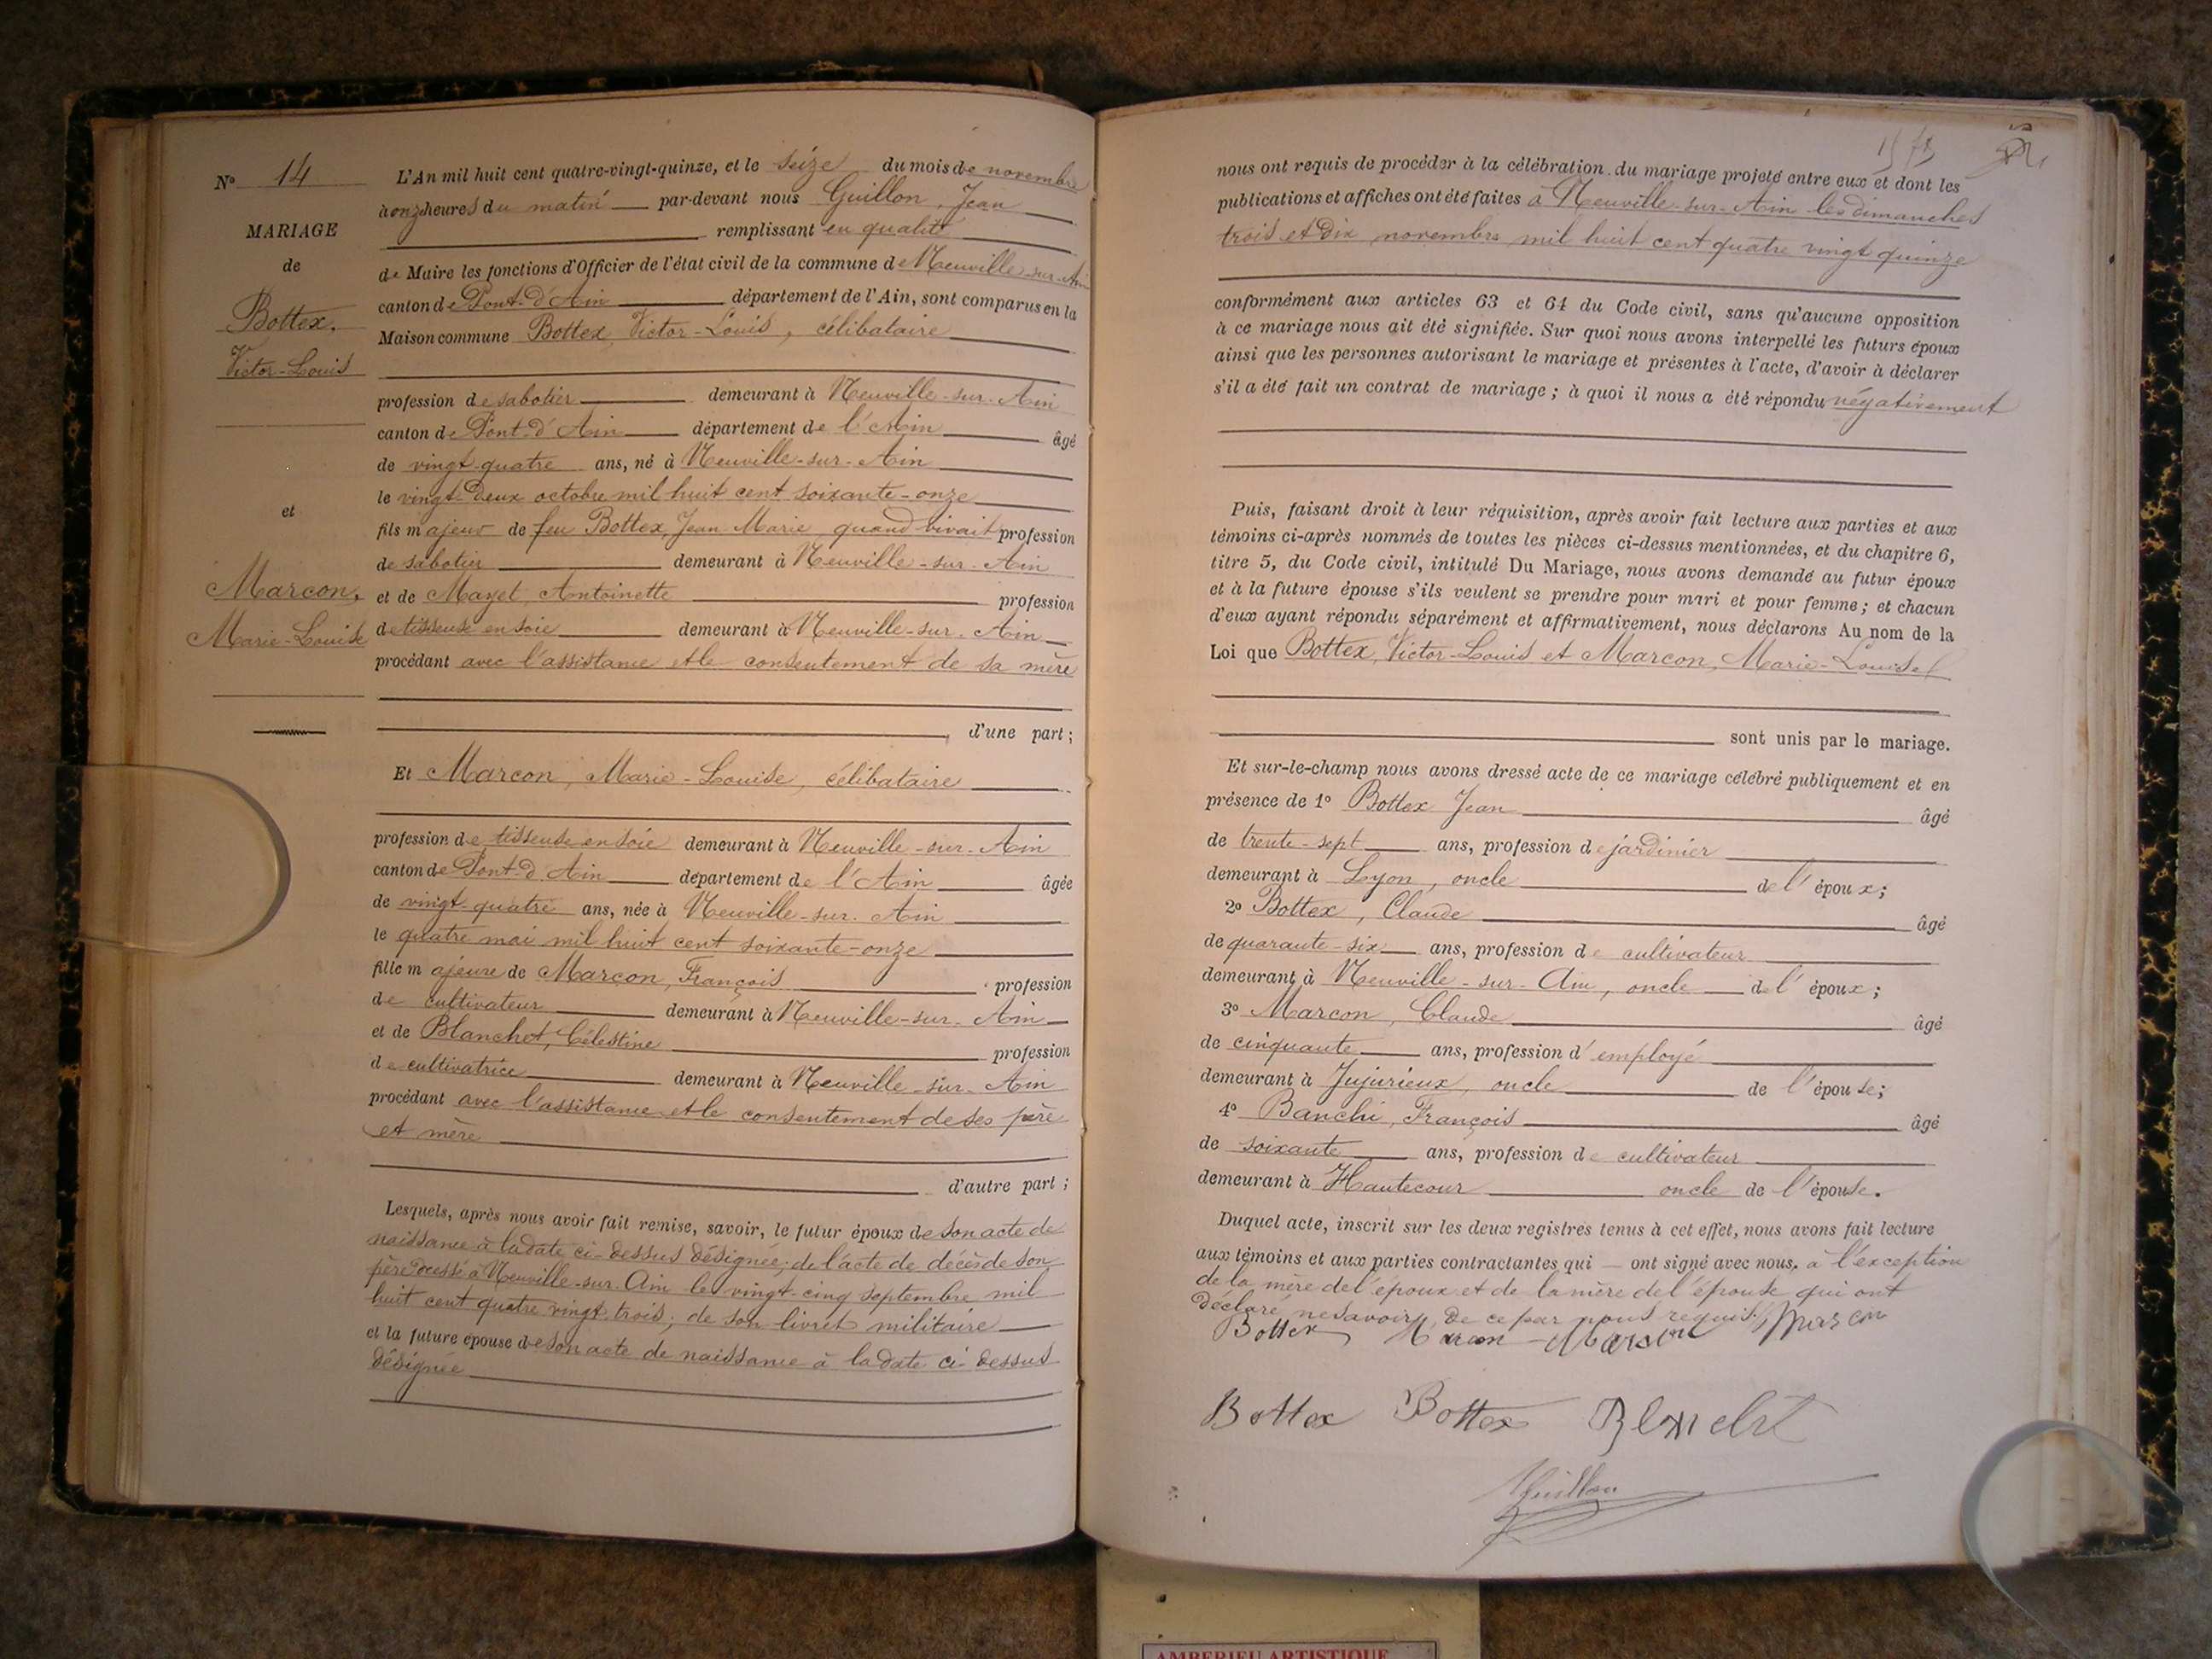 Nº 14
MARIAGE
de
Bottex,
Victor-Louis
et
Marcon,
Marie-Louise
L'An mil huit cent quatre-vingt-quinze, et le seize du mois de novembre
à onze heures du matin par-devant nous Guillon, Jean
remplissant en qualité
de Maire les fonctions d'Officier de l'état civil de la commune de Neuville-sur-Ain
canton de Pont-d'Ain département de l'Ain, sont comparus en la
Maison commune Bottex, Victor-Louis, célibataire
profession de sabotier demeurant à Neuville-sur-Ain
canton de Pont-d'Ain département de l'Ain âgé
de vingt-quatre ans, né à Neuville-sur-Ain
le vingt deux octobre mil huit cent soixante-onze
fils majeur de feu Bottex, Jean Marie quand vivait profession
de sabotier demeurant à Neuville-sur-Ain
et de Mayet, Antoinette profession
de tisseuse en soie demeurant à Neuville-sur-Ain
procédant avec l'assistance et le consentement de sa mère
d'une part ;
Et Marcon, Marie-Louise, célibataire
profession de tisseuse en soie demeurant à Neuville-sur-Ain
canton de Pont-d'Ain département de l'Ain âgée
de vingt-quatre ans, née à Neuville-sur-Ain
le quatre mai mil huit cent soixante-onze
fille majeure de Marcon, François profession
de cultivateur demeurant à Neuville-sur-Ain
et de Blanchet, Célestine profession
de cultivatrice demeurant à Neuville-sur-Ain
procédant avec l'assistance et le consentement de ses père
et mère
d'autre part ;
Lesquels, après nous avoir fait remise, savoir, le futur époux de son acte de
naissance à la date ci-dessus désignée; de l'acte de décès de son
père décédé à Neuville-sur-Ain le vingt-cinq septembre mil
huit cent quatre vingt trois; de son livret militaire
et la future épouse de son acte de naissance à la date ci-dessus
désignée
nous ont requis de procéder à la célébration du mariage projeté entre eux et dont les
publications et affiches ont été faites à Neuville-sur-Ain les dimanches
trois et dix novembre mil huit cent quatre vingt quinze
conformément aux articles 63 et 64 du Code civil, sans qu'aucune opposition
à ce mariage nous ait été signifiée. Sur quoi nous avons interpellé les futurs époux
ainsi que les personnes autorisant le mariage et présentes à l'acte, d'avoir à déclarer
s'il a été fait un contrat de mariage ; à quoi il nous a été répondu négativement
Puis, faisant droit à leur réquisition, après avoir fait lecture aux parties et aux
témoins ci-après nommés de toutes les pièces ci-dessus mentionnées, et du chapitre 6,
titre 5, du Code civil, intitulé Du Mariage, nous avons demandé au futur époux
et à la future épouse s'ils veulent se prendre pour mari et pour femme ; et chacun
d'eux ayant répondu séparément et affirmativement, nous déclarons Au nom de la
Loi que Bottex, Victor-Louis et Marcon, Marie-Louise
sont unis par le mariage.
Et sur-le-champ nous avons dressé acte de ce mariage célébré publiquement et en
présence de 1º Bottex Jean âgé
de trente-sept ans, profession de jardinier
demeurant à Lyon, oncle de l'époux ;
2º Bottex, Claude âgé
de quarante-six ans, profession de cultivateur
demeurant à Neuville-sur-Ain, oncle de l'époux ;
3º Marcon, Claude âgé
de cinquante ans, profession d'employé
demeurant à Jujurieux, oncle de l'épouse ;
4º Banchi, François âgé
de soixante ans, profession de cultivateur
demeurant à Hautecour oncle de l'épouse.
Duquel acte, inscrit sur les deux registres tenus à cet effet, nous avons fait lecture
aux témoins et aux parties contractantes qui ont signé avec nous, à l'exception
de la mère de l'époux et de la mère de l'épouse qui ont
déclaré ne savoir, de ce par nous requis
Bottex Marcon Marcon Marcon
Bottex Bottex Blanchet
Guillon
AMBERIEU ARTISTIQUE